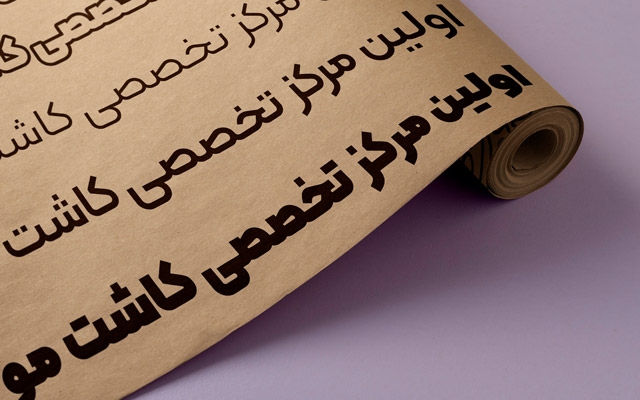 تخصصی کا
مرکز تخصصی کاشت
اولین مرکز تخصصی کاشت
اولین مرکز تخصصی کاشت مو